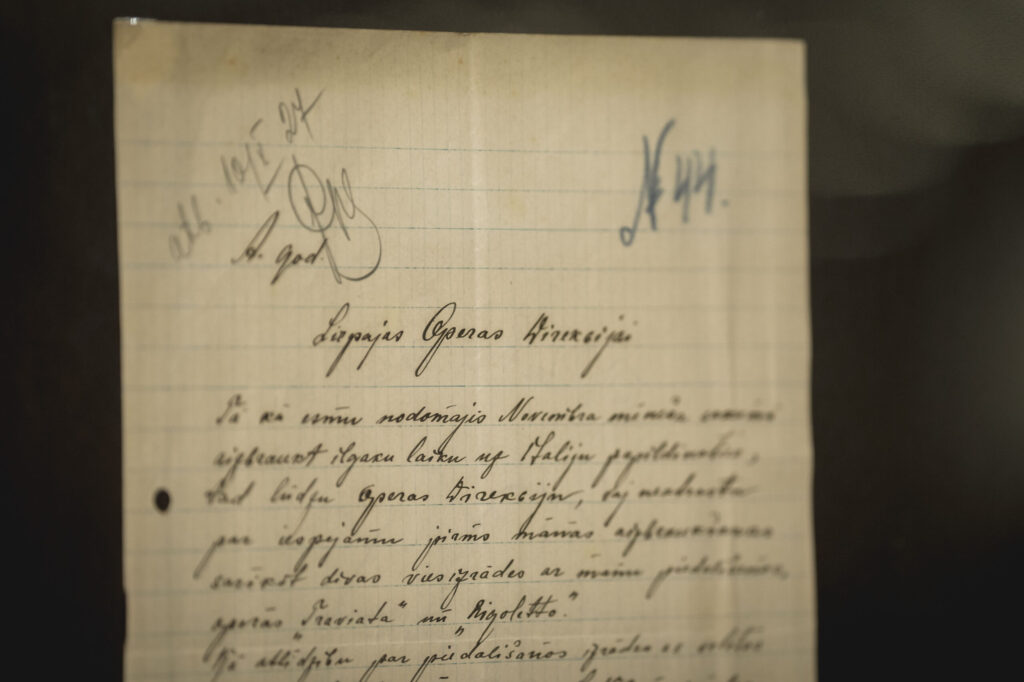 atb. 10/I 27
№ 44.
A. god.
Liepajas Operas Direkcijai
Tā kā esmu nodomājis Novembra mēneša
aizbraukt ilgaku laiku uz Italiju papildinaties,
tad lūdzu Operas Direkciju, vaj neatrastu
par iespejamu pirms manas aizbraukšanas
sarikot divas viesizrādes ar manu piedališanos,
operās "Traviata" un "Rigoletto."
Kā atlidzibu par piedališanos izrādes es